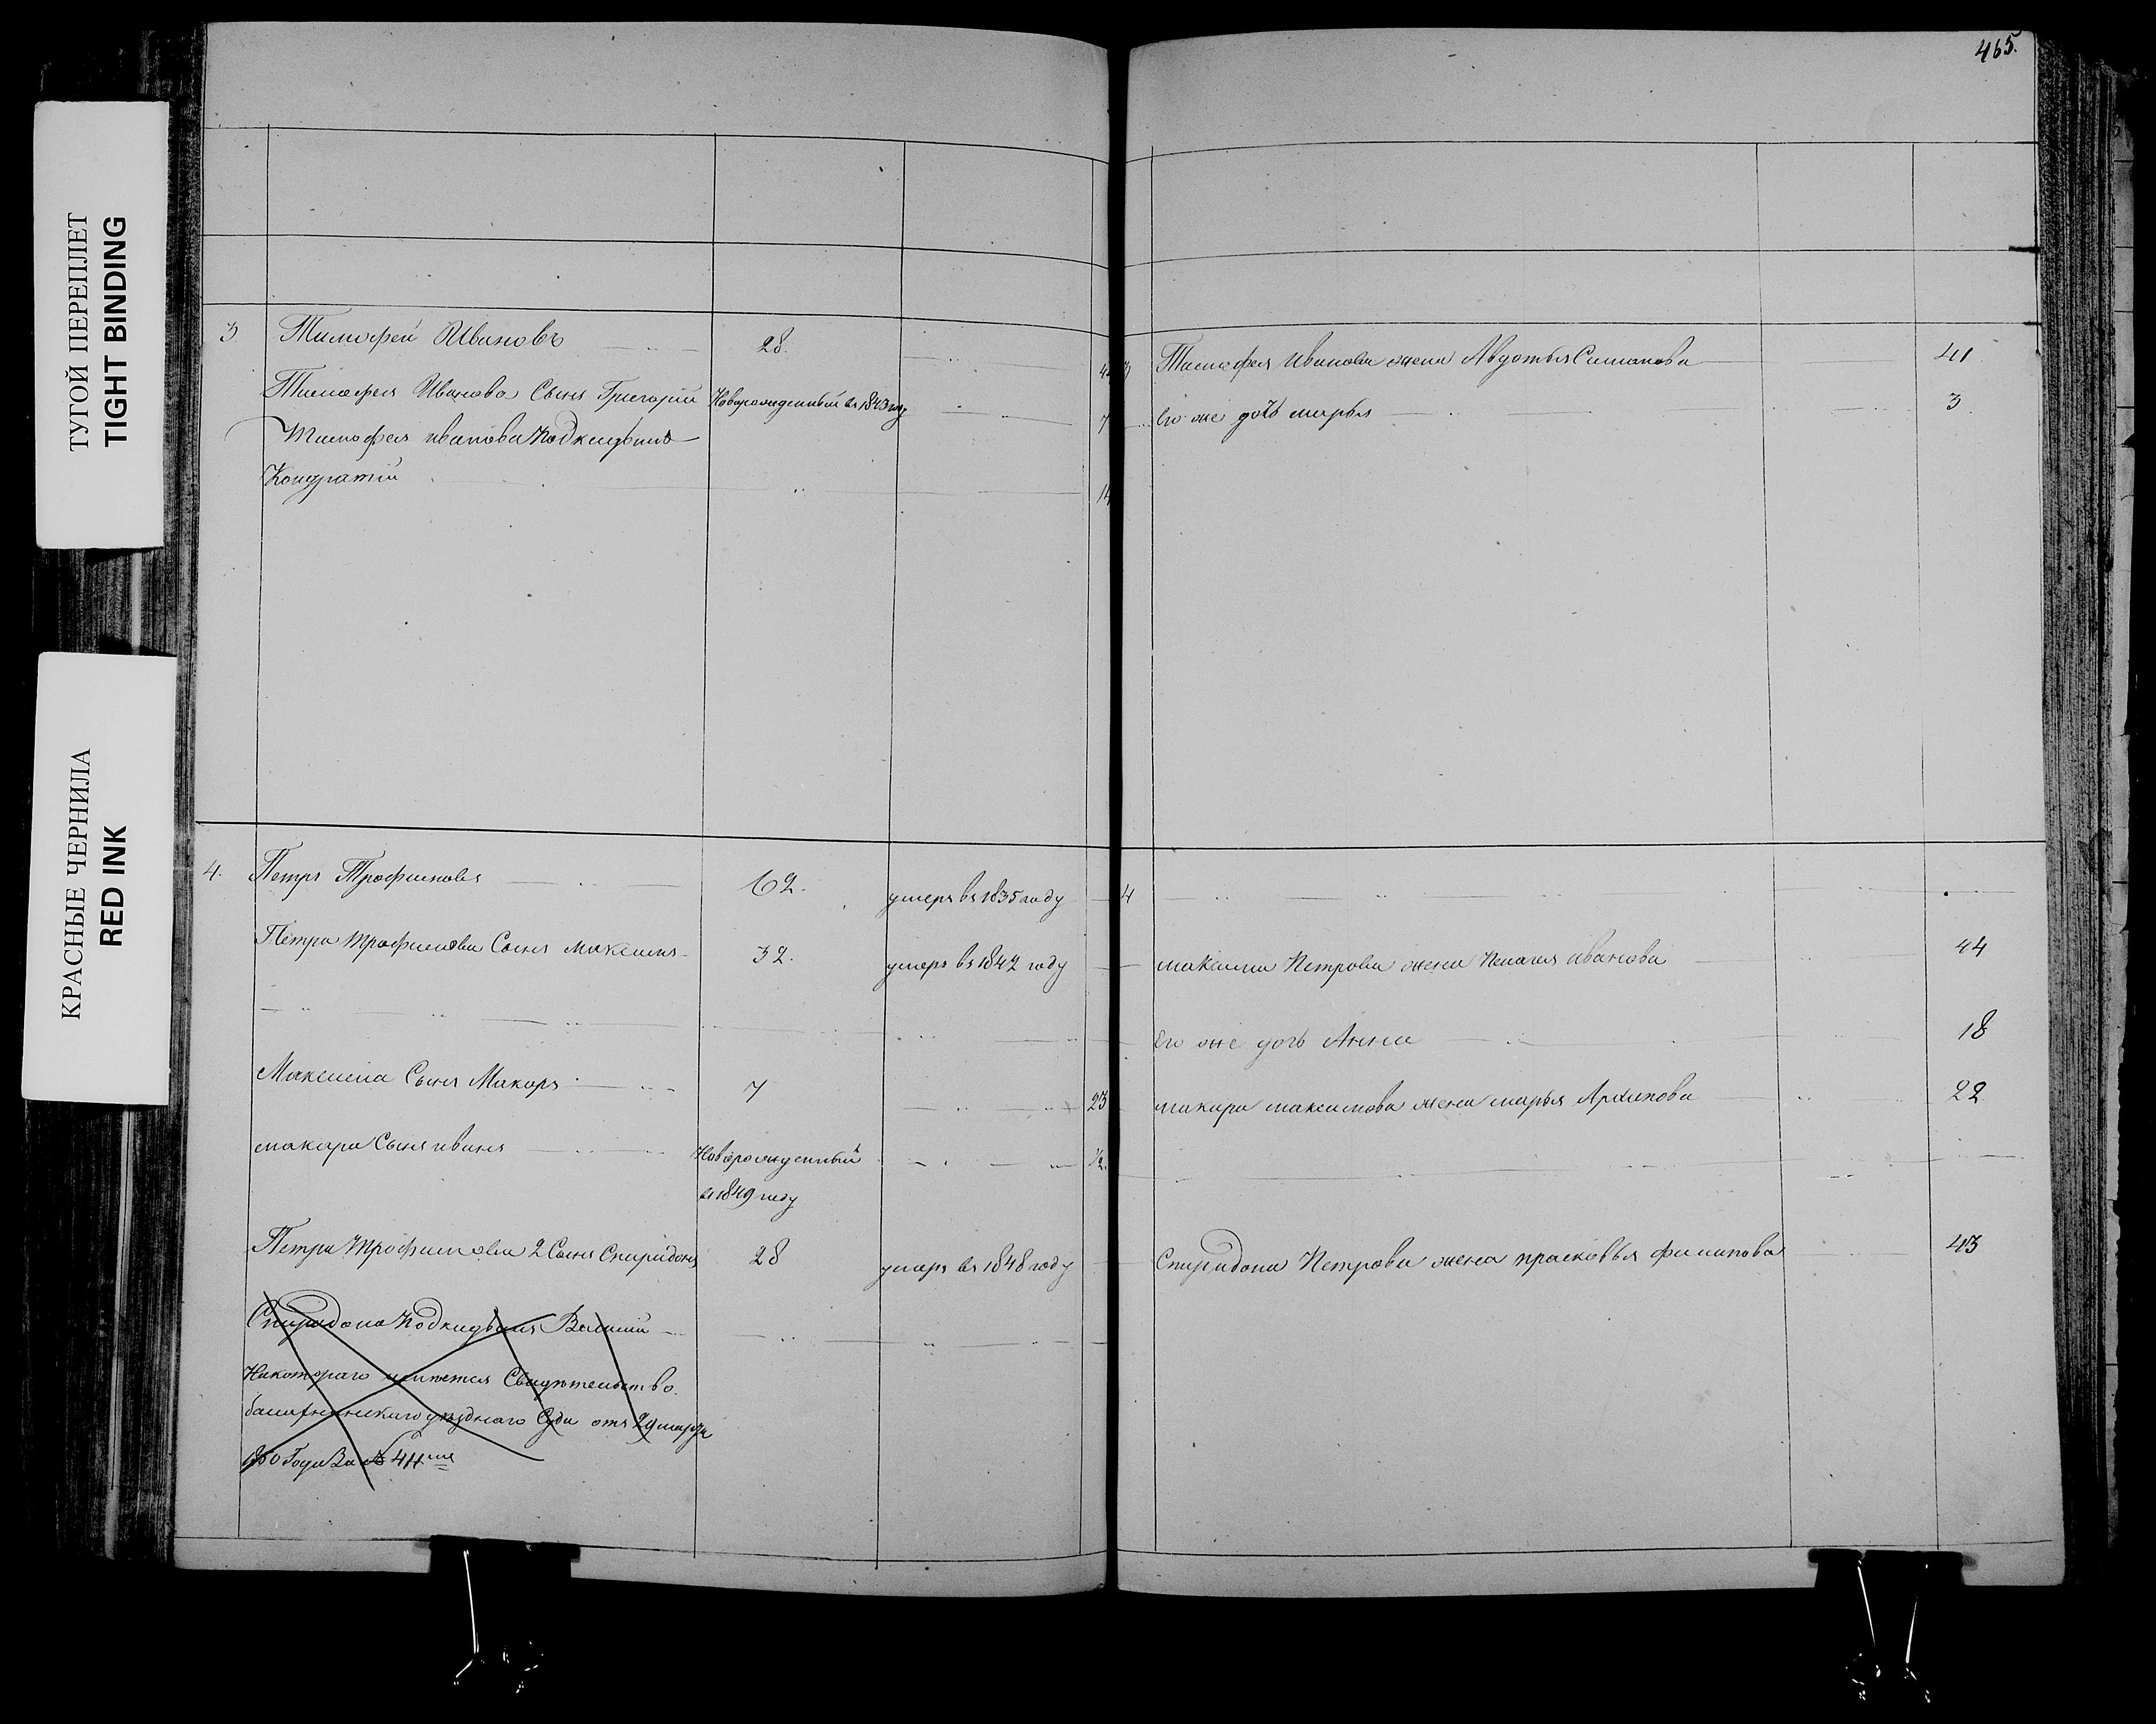 465.
ТУГОЙ ПЕРЕПЛЕТ
TIGHT BINDING
КРАСНЫЕ ЧЕРНИЛА
RED INK
3 Тимофей Ивановъ 28.
Тимофея Иванова Сынъ Григорий Новорожденный въ 1843 году 7
Тимофея иванова подкидышъ
Кондратий 14
4. Петръ Трофимовъ 62. умеръ въ 1835 году
Петра трофимова Сынъ максимъ 32. умеръ въ 1842 году
Максима Сынъ Макаръ 7 23
макара Сынъ иванъ Новорожденный 1/2.
въ 1849 году
Петра трофимова 2 Сынъ Спиридонъ 28 умеръ въ 1848 году
Спиридона подкидышъ
На котораго имѣется Свидѣтельство
уѣзднаго Суда отъ 29 марта
1850 Года За № 411мъ
3 Тимофея Иванова жена Авдотья 41
Его же дочь марья 3
4
максима Петрова жена Пелагея иванова 44
Его же дочь Анна 18
макара максимова жена марья Архипова 22
Спиридона Петрова жена прасковья филипова 43